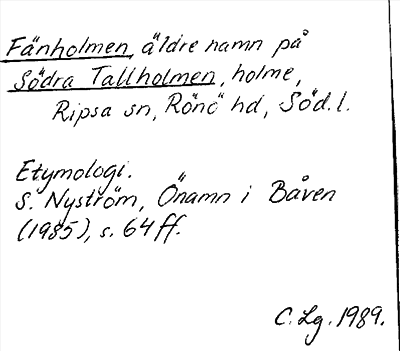 Fänholmen, äldre namn på
Södra Tallholmen, holme,
Ripsa sn, Rönö hd, Söd. l.
Etymologi.
S. Nyström, Önamn i Båven
(1985), s. 64 ff.
C. Lg. 1989.